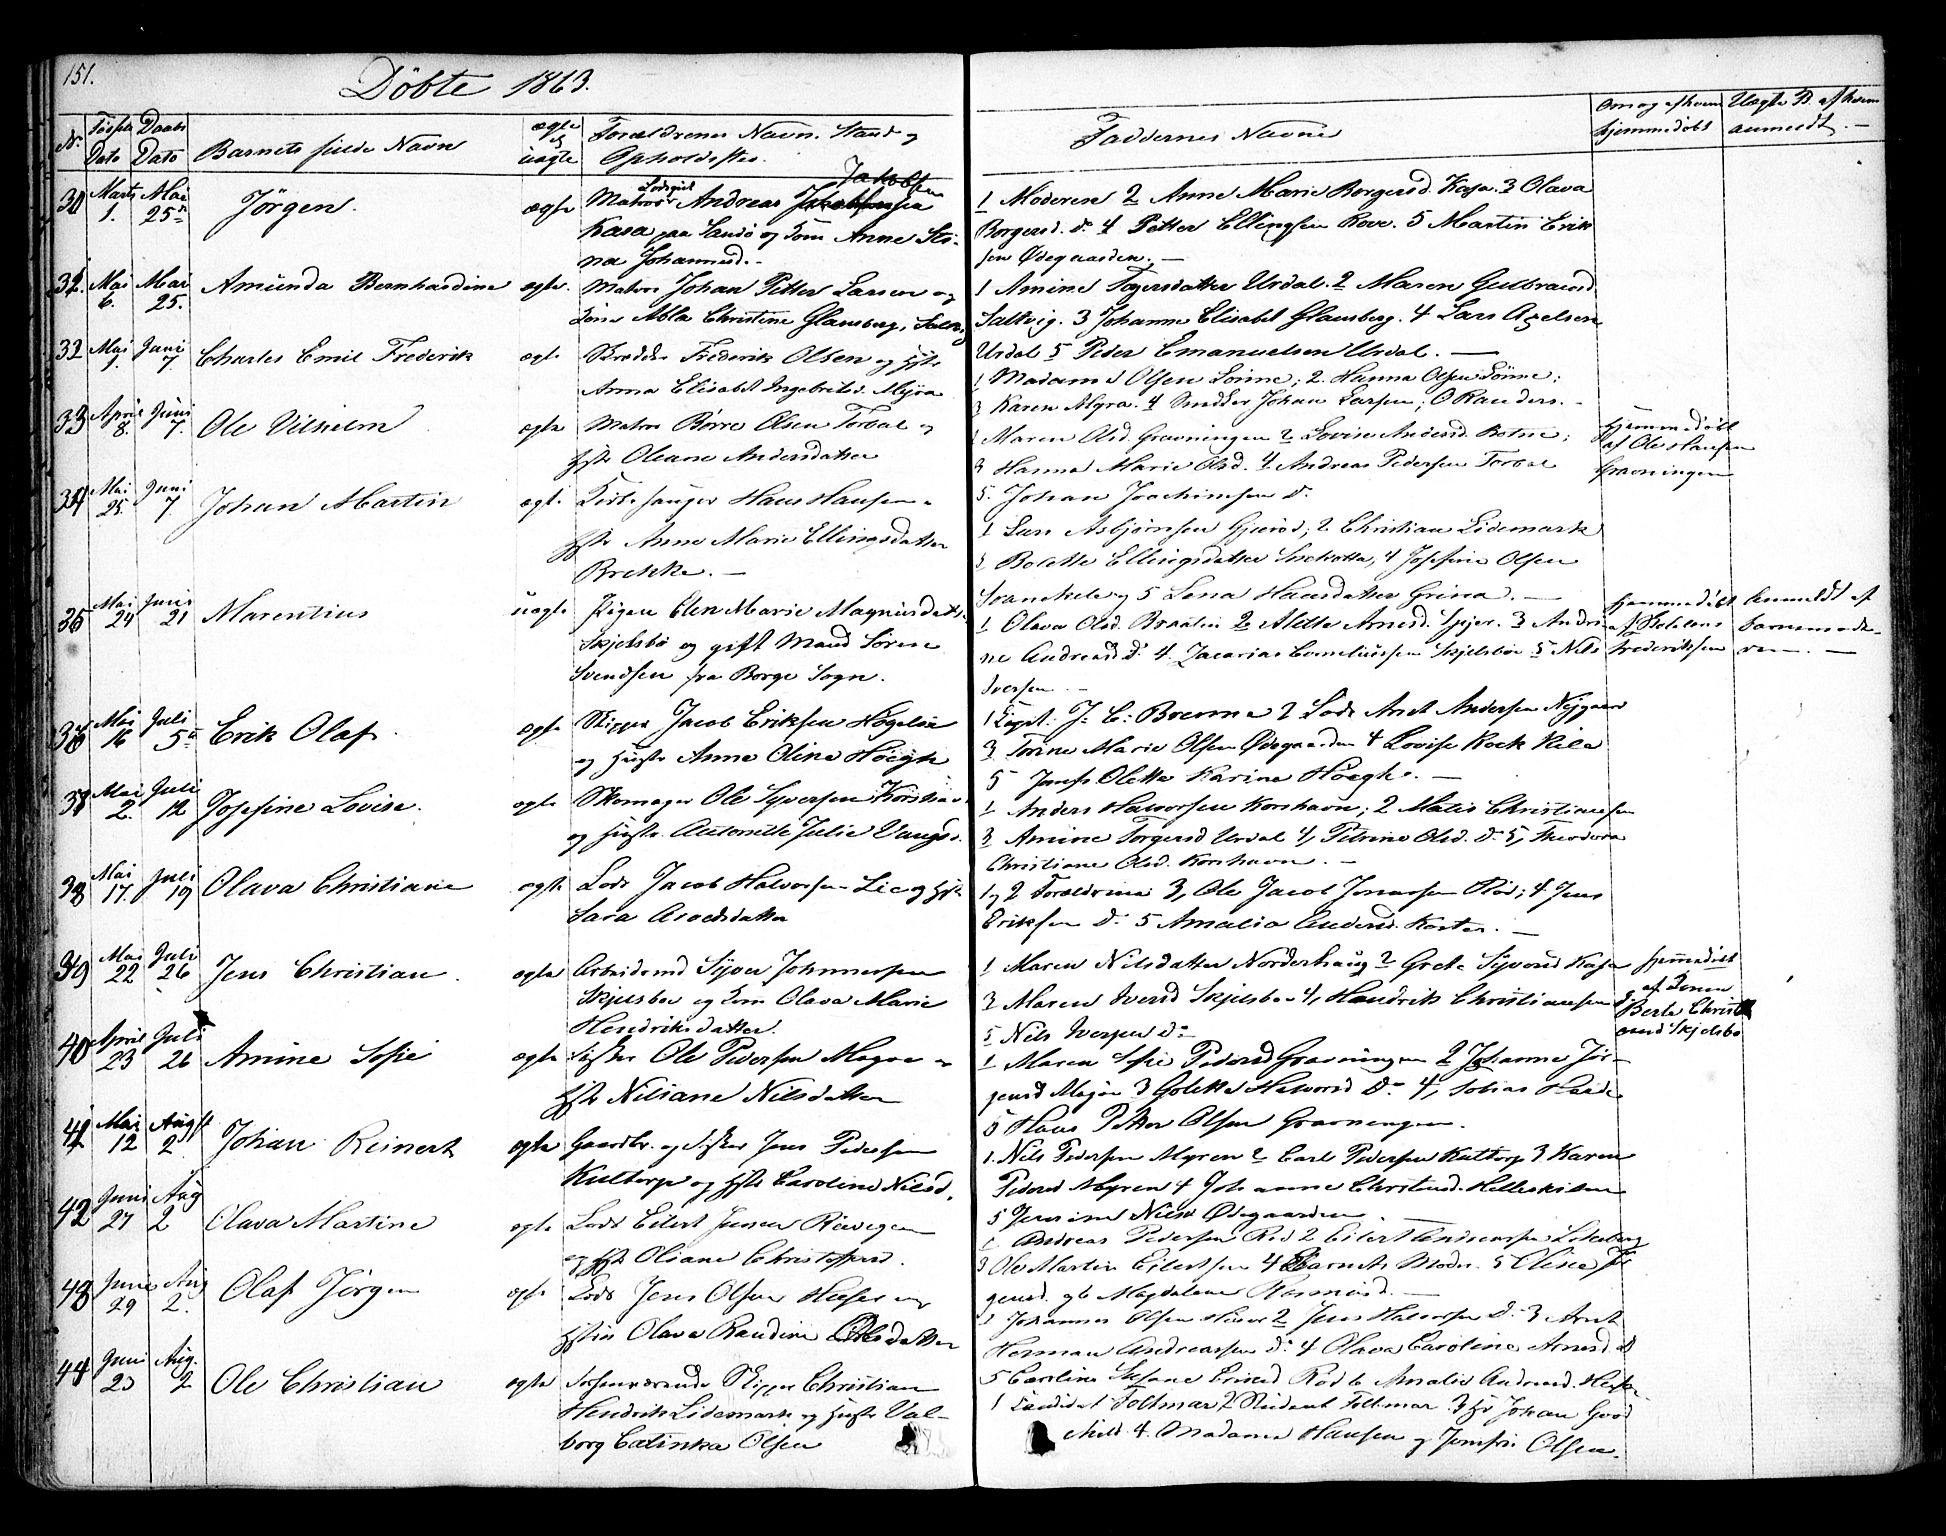 151.
Döbte 1863.
Nr. Födsels Dato Daabs Dato Barnets fulde Navn ægte el uægte Forældrenes Navn. Stand og Opholdssted. Faddernes Navne Om og af hvem hjemmedöbt Uægte B. af hvem anmeldt.
30 Marts 1. Mai 25de Jörgen. ægte Matros Andreas Jakobsen
Kasa paa Sandö og Kone Anne Sti-
na Johannesd. -
1 Moderen 2 Anne Marie Borgersd. Kasa. 3 Olava
Borgersd. do 4 Petter Ellingsen Rove. 5 Martin Erik
sen Ödegaarden. -
31. Mai 6. Mai 25. Amunda Bernhardine ægte. Matros Johan Petter Larsen og
Kone Abla Christine Glansberg,
1 Amine Torgersdatter Urdal. 2 Maren Gulbrandsd
Saltvig. 3 Johanne Elisabet Glansberg. 4 Lars Axelsen
Urdal 5 Peder Emanuelsen Urdal. -
32 Mai 9. Juni 7 Charles Emil Frederik ægte Skrædder Frederik Olsen og Hstr
Anna Elisabet Ingebretsd. Myra
1 Madame Olsen Sönne; 2. Hanna Olsen Sönne;
3 Karen Myra. 4 Snedker Johan Larsen; O Randers. -
33 April 8. Juni 7. Ole Vilhelm ægte Matros Börre Olsen Torbal og
Hstr Oleane Andersdatter
1 Maren Olsd. Gravningen 2 Lovise Andersd. Botne;
3 Hanna Marie Olsd. 4. Andreas Pedersen Torbal
5. Johan Joachimsen do.
Hjemmedöbt
af Ole Hansen
Gravningen
34 Mai 25. Juni 7 Johan Martin ægte Kirkesanger Hans Hansen -
Hstr Anne Marie Ellingsdatter
Brekke. -
1 Lars Asbjörnsen Gjeröd; 2 Christian Lidemark
3 Bolette Ellingsdatter 4 Josefine Olsen
Svanekil og 5 Lena Hansdatter Grina. -
35 Mai 24 Juni 21 Marentius uægte Pigen Elen Marie Magnusdatt.
Skjelsbö og gift Mand Sören
Svendsen fra Borge Sogn.
1 Olava Olsd. Braaten 2 Alette Arnesd. Spjer. 3 Andri-
ne Andreasd do 4. Zacarias Corneliussen Skjelsboe 5 Nils
Iversen. -
Hjemmedöbt
Frederiksen
Anmeldt af
Barnemode-
ren. -
36 Mai 16 Juli 5te Erik Olaf. ægte Skipper Jacob Eriksen Högelie
og Hustr Anne Oline Höegh
1 Capt. J: C: Boemme 2 Lods Anst Andersen Nygaard
3 Torine Marie Olsen Ödegaarden 4 Lovise Kock Kile
5 Jomfr Olette Karine Höegh. -
37 Mai 2. Juli 12 Josefine Lovise. ægte Skomager Ole Syversen Korshavn
og Hustr. Antonette Julie Vaugsd.
1 Anders Halvorsen Korshavn; 2 Matis Christiansen
3 Amine Torgersd Urdal 4, Petrine Olsd. do 5, Theodora
Christiane Olsd. Korshavn. -
38 Mai 17. Juli 19 Olava Christiane ægte Lods Jacob Halvorsen Lie og Hstr.
Sara Arvedsdatter
1 og 2 Forældrene 3, Ole Jacob Jonassen Röd; 4 Jens
Eriksen do 5 Amalia Andersd. Korter. -
39 Mai 22 Juli 26 Jens Christian. ægte Arbeidsmd Syver Johannessen
Skjelsboe og Kone Olava Marie
Hendriksdatter.
1 Maren Nilsdatter Norderhaug 2 Grete Syversd Kasa
3 Maren Iversd Skjelsboe 4, Hendrik Christiansen
5 Nils Iversen do
Hjemmedöbt
af Konen
Berte Christi
ansd Skjelsbo
40 April 23 Juli 26 Amine Sofie ægte Fisker Ole Pedersen Magöe -
Hstr Niliane Nilsdatter
1 Maren Sofie Pedersd Gravningen 2 Johanne Jör-
gensd Magöe 3 Golette Halvorsd do 4, Tobias
5 Hans Petter Olsen Gravningen.
41 Mai 12 Augst 2 Johan Reinert ægte Gaardbr. og Fisker Jens Pedersen
Kultorp og Hstr Caroline Nilsd.
1. Nils Pedersen Myren 2 Carl Pedersen Kultorp 3 Karen
Pedersd Myren 4 Johanne Christensd. Helleskilen
5 Jensine Nilsd Ödegaarden -
42 Juni 27 Aug 2 Olava Martine ægte Lods Eilert Jensen Rövegen
og Hstr Oliane Christophersd.
1 Andreas Pedersen Röd 2 Eilert Andreassen Lökeberg
3 Ole Martin Eilertsen 4 Barnets Moder. 5 Eline Jör
gensd. gb Magdalene Rasmusd. -
43 Juni 29 Aug 2. Olaf Jörgen ægte Lods Jens Olsen Huser og
Hstru Olava Randine Olsdatter
1 Johannes Olsen Huser 2 Jens Halvorsen do 3 Arnt
Herman Andreassen do 4 Olava Caroline Arnesd. do
5 Caroline Stefane Eriksd Röd 6 Amalie Andersd.
44 Juni 23 Aug. 2 Ole Christian ægte Forhenværende Skipper Christian
Hendrik Lidemark og Hustr Val-
borg Catinka Olsen
1 Candidat Foltmar 2 Student Foltmar. 3 Hr Johan Good
child 4. Madame Hansen og Jomfru Olsen.